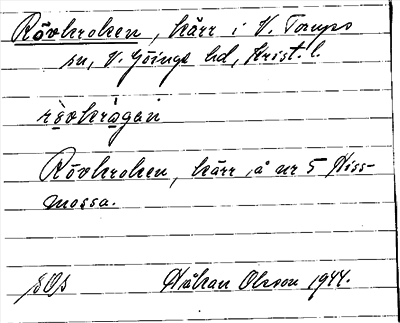 Rövkroken, kärr i V. Torups
sn, V. Göinge hd, Krist. l.
rèvkrågan
Rövkroken, kärr å nr 5 Hiss-
mossa.
Håkan Olsson 1944.